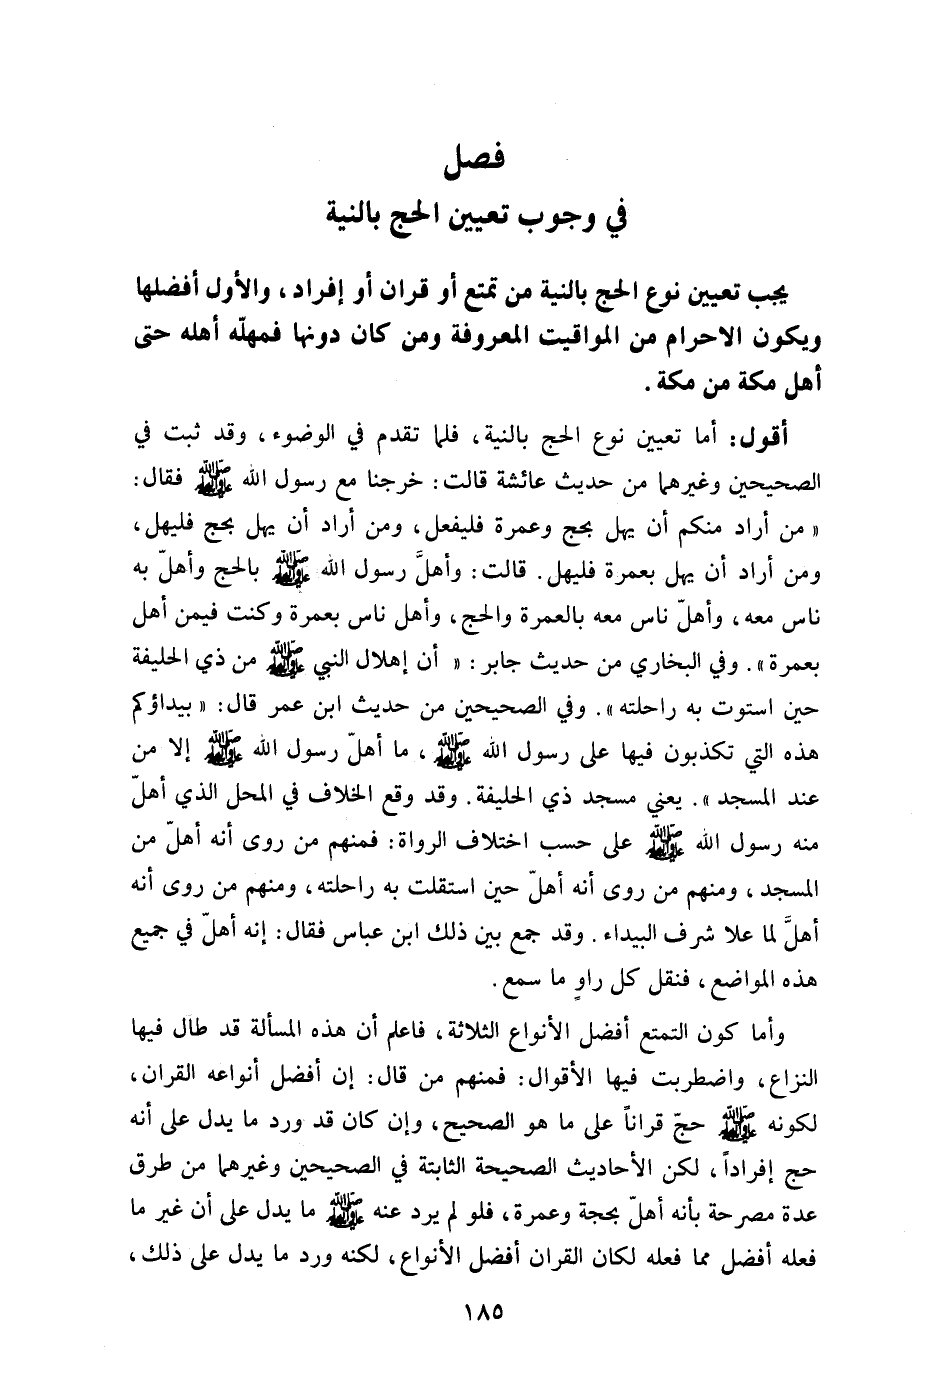 فصل
في وجوب تعيين الحج بالنية
يجب تعيين نوع الحج بالنية من تمتع أو قران أو إفراد، والأول أفضلها
ويكون الاحرام من المواقيت المعروفة ومن كان دونها فمهلّه أهله حتى
أهل مكة من مكة.
أقول: أما تعيين نوع الحج بالنية، فلما تقدم في الوضوء، وقد ثبت في
الصحيحين وغيرهما من حديث عائشة قالت: خرجنا مع رسول الله ﷺ فقال:
«من أراد منكم أن يهل بحج وعمرة فليفعل، ومن أراد أن يهل بحج فليهل،
ومن أراد أن يهل بعمرة فليهل. قالت: وأهلَّ رسول الله ﷺ بالحج وأهلّ به
ناس معه، وأهلّ ناس معه بالعمرة والحج، وأهل ناس بعمرة وكنت فيمن أهل
بعمرة». وفي البخاري من حديث جابر: « أن إهلال النبي ﷺ من ذي الحليفة
حين استوت به راحلته». وفي الصحيحين من حديث ابن عمر قال: «بيداؤكم
هذه التي تكذبون فيها على رسول الله ﷺ، ما أهلّ رسول الله ﷺ إلا من
عند المسجد». يعني مسجد ذي الحليفة. وقد وقع الخلاف في المحل الذي أهلّ
منه رسول الله ﷺ على حسب اختلاف الرواة: فمنهم من روى أنه أهلّ من
المسجد، ومنهم من روى أنه أهلّ حين استقلت به راحلته، ومنهم من روى أنه
أهلَّ لما علا شرف البيداء. وقد جمع بين ذلك ابن عباس فقال: إنه أهلّ في جميع
هذه المواضع، فنقل كل راوٍ ما سمع.
وأما كون التمتع أفضل الأنواع الثلاثة، فاعلم أن هذه المسألة قد طال فيها
النزاع، واضطربت فيها الأقوال: فمنهم من قال: إن أفضل أنواعه القران،
لكونه ﷺ حجّ قراناً على ما هو الصحيح، وإن كان قد ورد ما يدل على أنه
حج إفراداً، لكن الأحاديث الصحيحة الثابتة في الصحيحين وغيرهما من طرق
عدة مصرحة بأنه أهلّ بحجة وعمرة، فلو لم يرد عنه ﷺ ما يدل على أن غير ما
فعله أفضل مما فعله لكان القران أفضل الأنواع، لكنه ورد ما يدل على ذلك،
١٨٥